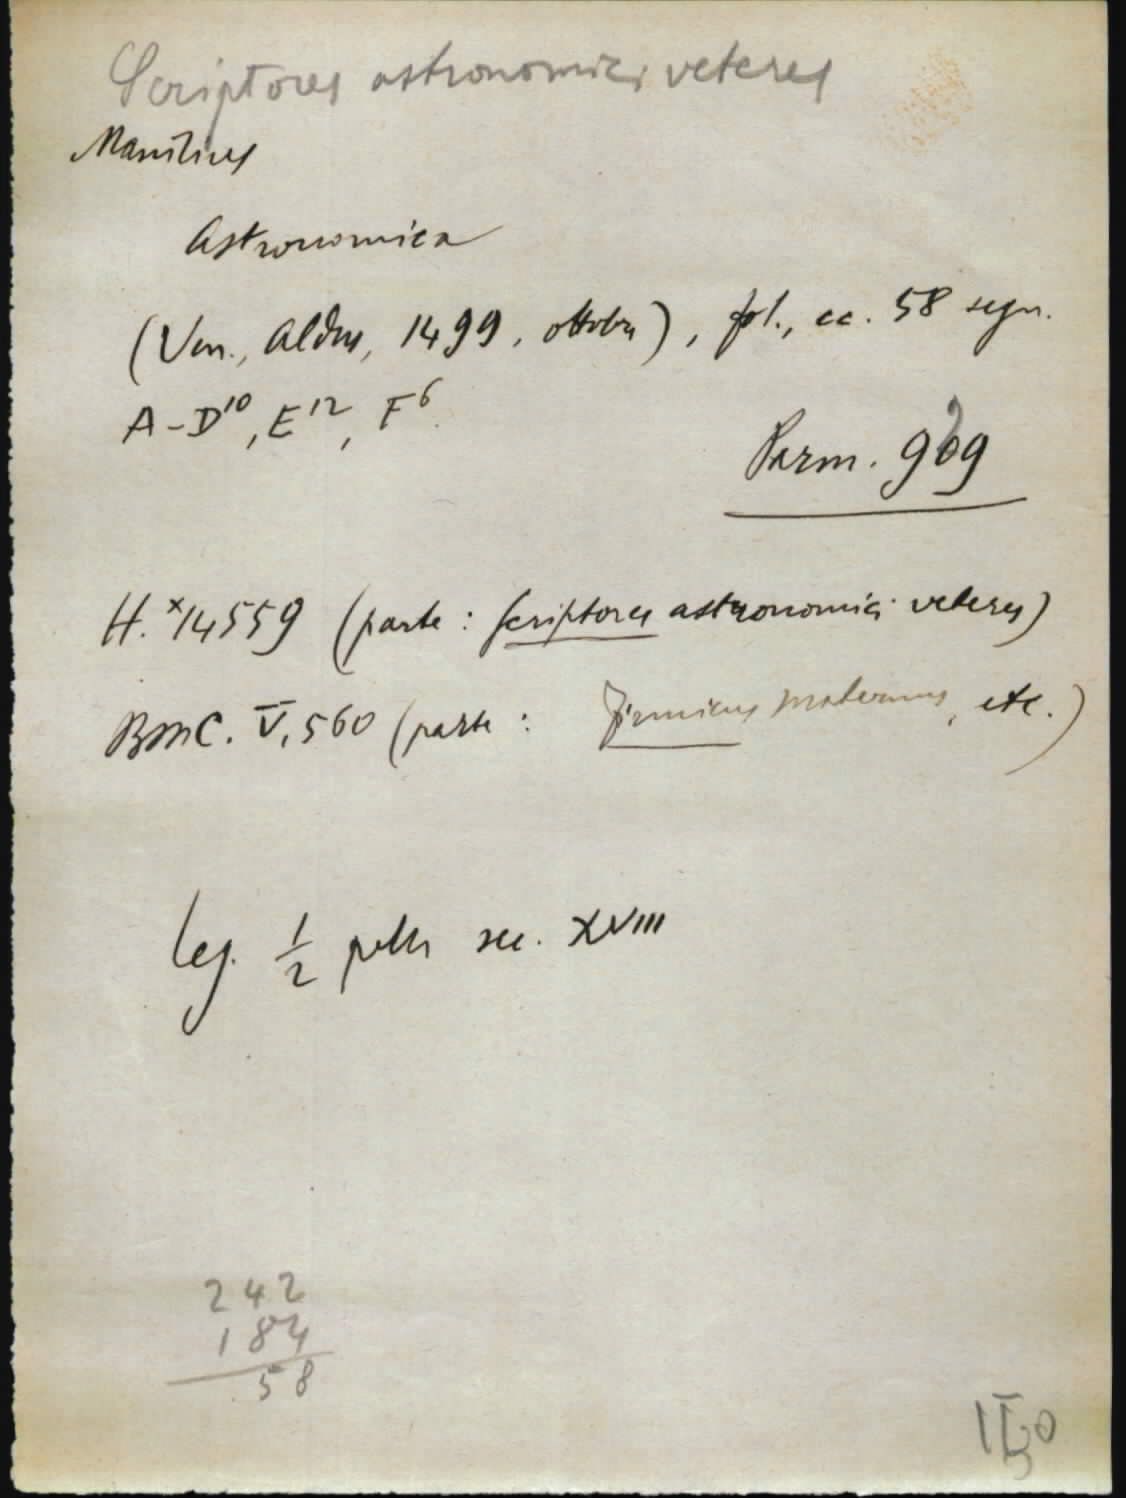 Scriptores astronomici veteres
Manilius
Astronomica
(Ven., Aldus, 1499, ottobre), fol., cc. 58 segn.
A-D¹⁰, E¹², F⁶.
Parm. 969
H. ˣ14559 (parte: Scriptores astronomici veteres)
BMC. V, 560 (parte: Firmicus Maternus, etc.)
Leg. ½ pelle sec. XVIII
242
184
58